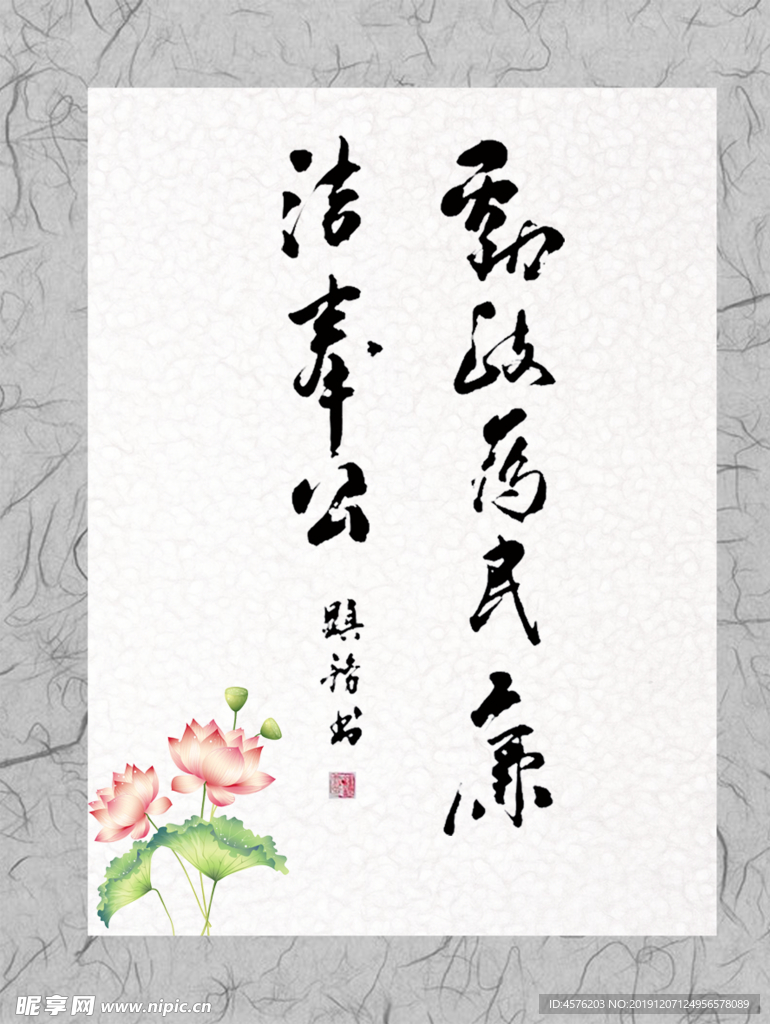 勤政為民廉
洁奉公
书
昵享网 www.nipic.cn
ID:4576203 NO:20191207124956578089